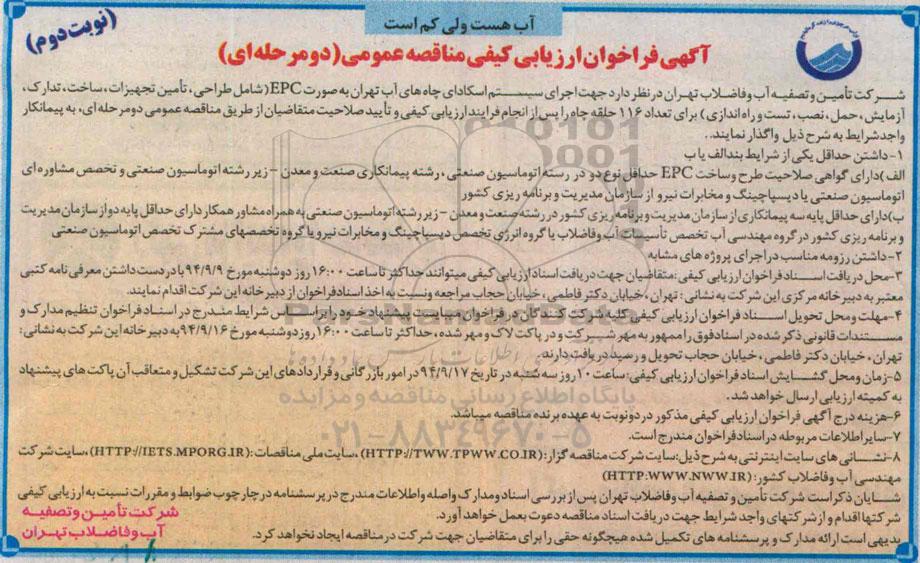 آب هست ولی کم است
(نوبت دوم)
آگهی فراخوان ارزیابی کیفی مناقصه عمومی (دو مرحله ای)
شرکت تأمین و تصفیه آب و فاضلاب تهران در نظر دارد جهت اجرای سیستم اسکادای چاه های آب تهران به صورت EPC (شامل طراحی، تأمین تجهیزات، ساخت، تدارک،
آزمایش، حمل، نصب، تست و راه اندازی) برای تعداد ۱۱۶ حلقه چاه را پس از انجام فرایند ارزیابی کیفی و تأیید صلاحیت متقاضیان از طریق مناقصه عمومی دو مرحله ای، به پیمانکار
واجد شرایط به شرح ذیل واگذار نمایند.
۱- داشتن حداقل یکی از شرایط بند الف یا ب
الف) دارای گواهی صلاحیت طرح و ساخت EPC حداقل نوع دو در رسته اتوماسیون صنعتی، رشته پیمانکاری صنعت و معدن - زیر رشته اتوماسیون صنعتی و تخصص مشاوره ای
اتوماسیون صنعتی یا دیسپاچینگ و مخابرات نیرو از سازمان مدیریت و برنامه ریزی کشور
ب) دارای حداقل پایه سه پیمانکاری از سازمان مدیریت و برنامه ریزی کشور در رشته صنعت و معدن - زیر رشته اتوماسیون صنعتی به همراه مشاور همکار دارای حداقل پایه دو از سازمان مدیریت
و برنامه ریزی کشور در گروه مهندسی آب تخصص تأسیسات آب و فاضلاب یا گروه انرژی تخصص دیسپاچینگ و مخابرات نیرو یا گروه تخصصهای مشترک تخصص اتوماسیون صنعتی
۲- داشتن رزومه مناسب در اجرای پروژه های مشابه
۳- محل دریافت اسناد فراخوان ارزیابی کیفی: متقاضیان جهت دریافت اسناد ارزیابی کیفی میتوانند حداکثر تا ساعت ۱۶:۰۰ روز دوشنبه مورخ ۹۴/۹/۹ با در دست داشتن معرفی نامه کتبی
معتبر به دبیرخانه مرکزی این شرکت به نشانی: تهران، خیابان دکتر فاطمی، خیابان حجاب مراجعه و نسبت به اخذ اسناد فراخوان از دبیرخانه این شرکت اقدام نمایند.
۴- مهلت و محل تحویل اسناد فراخوان ارزیابی کیفی کلیه شرکت کنندگان در فراخوان میبایست پیشنهاد خود را بر اساس شرایط مندرج در اسناد فراخوان تنظیم مدارک و
مستندات قانونی ذکر شده در اسناد فوق را ممهور به مهر شرکت و در پاکت لاک و مهر شده، حداکثر تا ساعت ۱۶:۰۰ روز دوشنبه مورخ ۹۴/۹/۱۶ به دبیرخانه این شرکت به نشانی:
تهران، خیابان دکتر فاطمی، خیابان حجاب تحویل و رسید دریافت دارند.
۵- زمان و محل گشایش اسناد فراخوان ارزیابی کیفی: ساعت ۱۰ روز سه شنبه در تاریخ ۹۴/۹/۱۷ در امور بازرگانی و قراردادهای این شرکت تشکیل و متعاقب آن پاکت های پیشنهاد
به کمیته ارزیابی ارسال خواهد شد.
۶- هزینه درج آگهی فراخوان ارزیابی کیفی مذکور در دو نوبت به عهده برنده مناقصه میباشد.
۷- سایر اطلاعات مربوطه در اسناد فراخوان مندرج است.
۸- نشانی های سایت اینترنتی به شرح ذیل: سایت شرکت مناقصه گزار: (HTTP://TWW.TPWW.CO.IR)، سایت ملی مناقصات: (HTTP://IETS.MPORG.IR)، سایت شرکت
مهندسی آب و فاضلاب کشور: (HTTP:WWW.NWW.IR)
شایان ذکر است شرکت تأمین و تصفیه آب و فاضلاب تهران پس از بررسی اسناد و مدارک واصله و اطلاعات مندرج در پرسشنامه در چارچوب ضوابط و مقررات نسبت به ارزیابی کیفی
شرکتها اقدام و از شرکتهای واجد شرایط جهت دریافت اسناد مناقصه دعوت بعمل خواهد آورد.
بدیهی است ارائه مدارک و پرسشنامه های تکمیل شده هیچگونه حقی را برای متقاضیان جهت شرکت در مناقصه ایجاد نخواهد کرد.
شرکت تأمین و تصفیه
آب و فاضلاب تهران
پایگاه اطلاع رسانی مناقصه و مزایده
۰۲۱-۸۸۳۴۹۶۷۰-۵